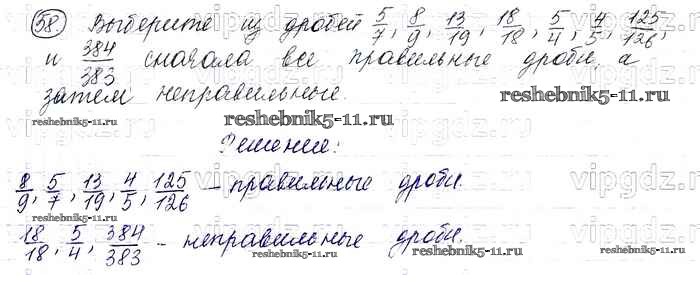 58. Выберите из дробей 5/7, 8/9, 13/19, 18/18, 5/4, 4/5, 125/126,
и 384/383 сначала все правильные дроби, а
затем неправильные.
reshebnik5-11.ru reshebnik5-11.ru reshebnik5-11.ru
Решение:
8/9, 5/7, 13/19, 4/5, 125/126 – правильные дроби.
reshebnik5-11.ru reshebnik5-11.ru
18/18, 5/4, 384/383 – неправильные дроби.
reshebnik5-11.ru reshebnik5-11.ru
vipgdz.ru